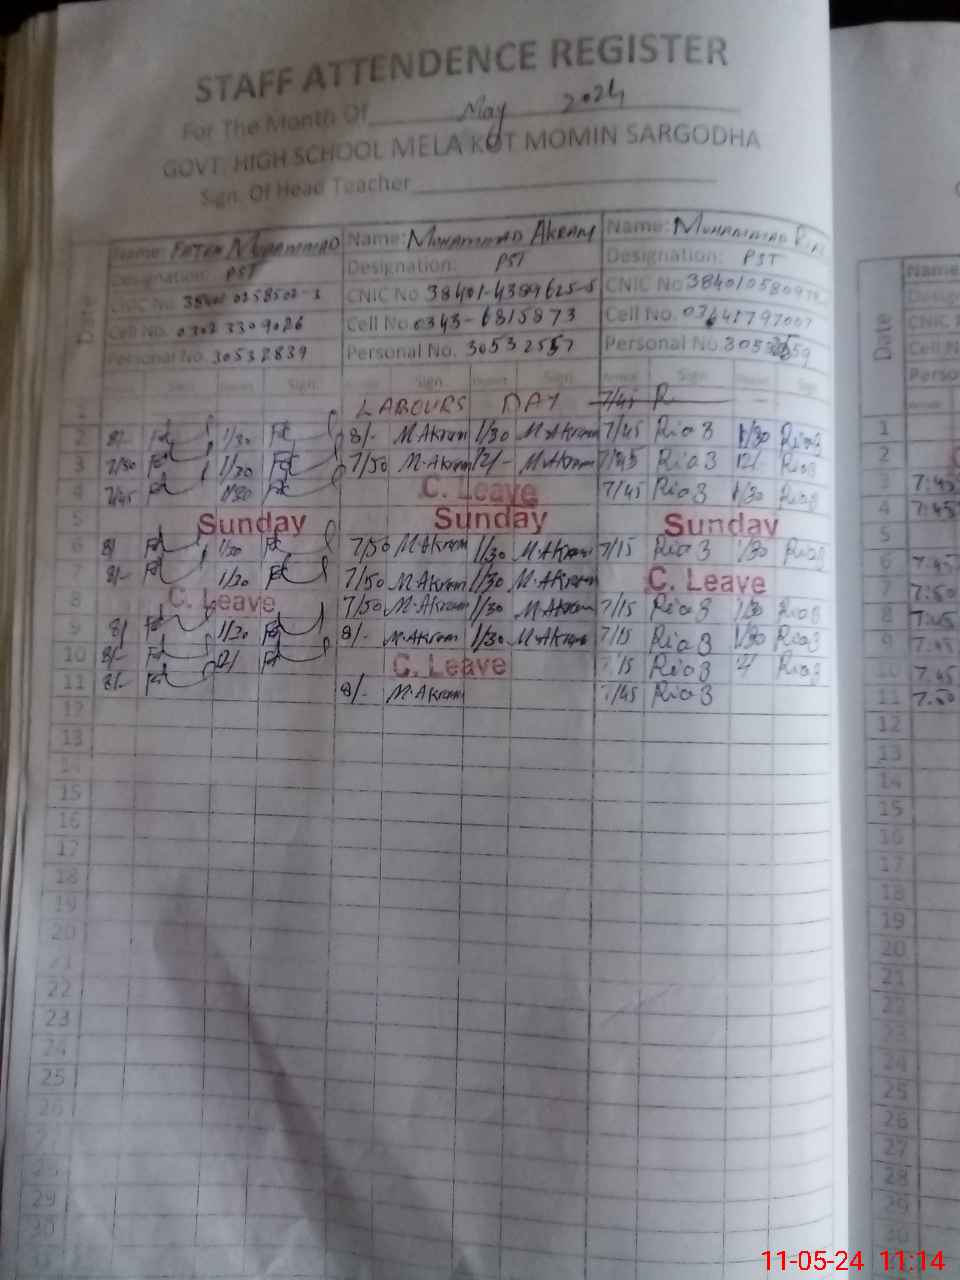 STAFF ATTENDENCE REGISTER
For The Month Of May 2024
GOVT. HIGH SCHOOL MELA KOT MOMIN SARGODHA
Sign. Of Head Teacher
Date
Name: FATEH MUHAMMAD Name: MUHAMMAD AKRAM Name: MUHAMMAD
Designation: PST Designation: PST Designation: PST
CNIC No CNIC No 38401-4389625-5 CNIC No
Cell No. 0302 3309026 Cell No 0343-6815873 Cell No.
Personal No. 30532839 Personal No. 30532557 Personal No.
Sign. Sign. Sign. Sign. Sign
1 LABOURS DAY 7/45 R
2 8/- 1/30 8/- M.Akram 1/30 M.Akram 7/45 Riaz 1/30 Riaz
3 7/50 1/30 7/50 M.Akram 12/- M.Akram 7/45 Riaz 12/ Riaz
4 7/45 1/30 C. Leave 7/45 Riaz 1/30 Riaz
5 Sunday Sunday Sunday
6 8/ 1/30 7/50 M.Akram 1/30 M.Akram 7/15 Riaz 1/30 Riaz
7 8/- 1/30 7/50 M.Akram 1/30 M.Akram C. Leave
8 C. Leave 7/50 M.Akram 1/30 M.Akram 7/15 Riaz 1/30 Riaz
9 8/ 1/30 8/- M.Akram 1/30 M.Akram 7/15 Riaz 1/30 Riaz
10 8/- 12/ C. Leave 7/15 Riaz Riaz
11 8/- 8/- M.Akram 7/45 Riaz
12
13
14
15
16
17
18
19
20
21
22
23
24
25
26
27
28
29
30
Date
Name
CNIC
Cell N
Perso
1
2
3 7:45
4 7:45
5
6 7:45
7 7:50
8 7:45
9 7:45
10 7:45
11 7:50
12
13
14
15
16
17
18
19
20
21
22
23
24
25
26
27
28
29
30
11-05-24 11:14